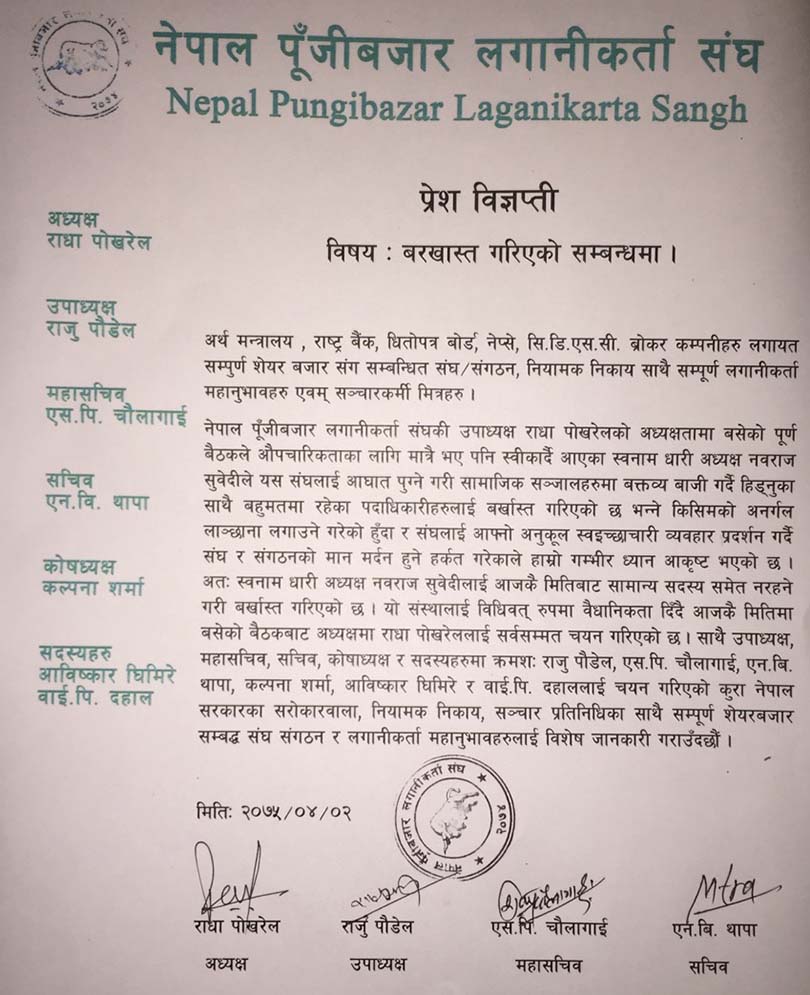 नेपाल पूँजीबजार लगानीकर्ता संघ
Nepal Pungibazar Laganikarta Sangh
प्रेश विज्ञप्ती
विषय : बरखास्त गरिएको सम्बन्धमा ।
अध्यक्ष
राधा पोखरेल
उपाध्यक्ष
राजु पौडेल
महासचिव
एस.पि. चौलागाई
सचिव
एन.वि. थापा
कोषध्यक्ष
कल्पना शर्मा
सदस्यहरु
आविष्कार घिमिरे
वाई.पि. दहाल
अर्थ मन्त्रालय , राष्ट्र बैंक, धितोपत्र बोर्ड, नेप्से, सि.डि.एस.सी. ब्रोकर कम्पनीहरु लगायत
सम्पुर्ण शेयर बजार संग सम्बन्धित संघ/संगठन, नियामक निकाय साथै सम्पूर्ण लगानीकर्ता
महानुभावहरु एवम् सञ्चारकर्मी मित्रहरु ।
नेपाल पूँजीबजार लगानीकर्ता संघकी उपाध्यक्ष राधा पोखरेलको अध्यक्षतामा बसेको पूर्ण
बैठकले औपचारिकताका लागि मात्रै भए पनि स्वीकार्दै आएका स्वनाम धारी अध्यक्ष नवराज
सुवेदीले यस संघलाई आघात पुग्ने गरी सामाजिक सञ्जालहरुमा बक्तव्य बाजी गर्दै हिड्नुका
साथै बहुमतमा रहेका पदाधिकारीहरुलाई बर्खास्त गरिएको छ भन्ने किसिमको अनर्गल
लाञ्छाना लगाउने गरेको हुँदा र संघलाई आफ्नो अनुकूल स्वइच्छाचारी व्यवहार प्रदर्शन गर्दै
संघ र संगठनको मान मर्दन हुने हर्कत गरेकाले हाम्रो गम्भीर ध्यान आकृष्ट भएको छ ।
अतः स्वनाम धारी अध्यक्ष नवराज सुवेदीलाई आजकै मितिबाट सामान्य सदस्य समेत नरहने
गरी बर्खास्त गरिएको छ । यो संस्थालाई विधिवत् रुपमा वैधानिकता दिँदै आजकै मितिमा
बसेको बैठकबाट अध्यक्षमा राधा पोखरेललाई सर्वसम्मत चयन गरिएको छ । साथै उपाध्यक्ष,
महासचिव, सचिव, कोषाध्यक्ष र सदस्यहरुमा क्रमशः राजु पौडेल, एस.पि. चौलागाई, एन.बि.
थापा, कल्पना शर्मा, आविष्कार घिमिरे र वाई.पि. दहाललाई चयन गरिएको कुरा नेपाल
सरकारका सरोकारवाला, नियामक निकाय, सञ्चार प्रतिनिधिका साथै सम्पूर्ण शेयरबजार
सम्बद्ध संघ संगठन र लगानीकर्ता महानुभावहरुलाई विशेष जानकारी गराउँदछौं ।
मितिः २०७५/०४/०२
राधा पोखरेल राजु पौडेल एस.पि. चौलागाई एन.बि. थापा
अध्यक्ष उपाध्यक्ष महासचिव सचिव